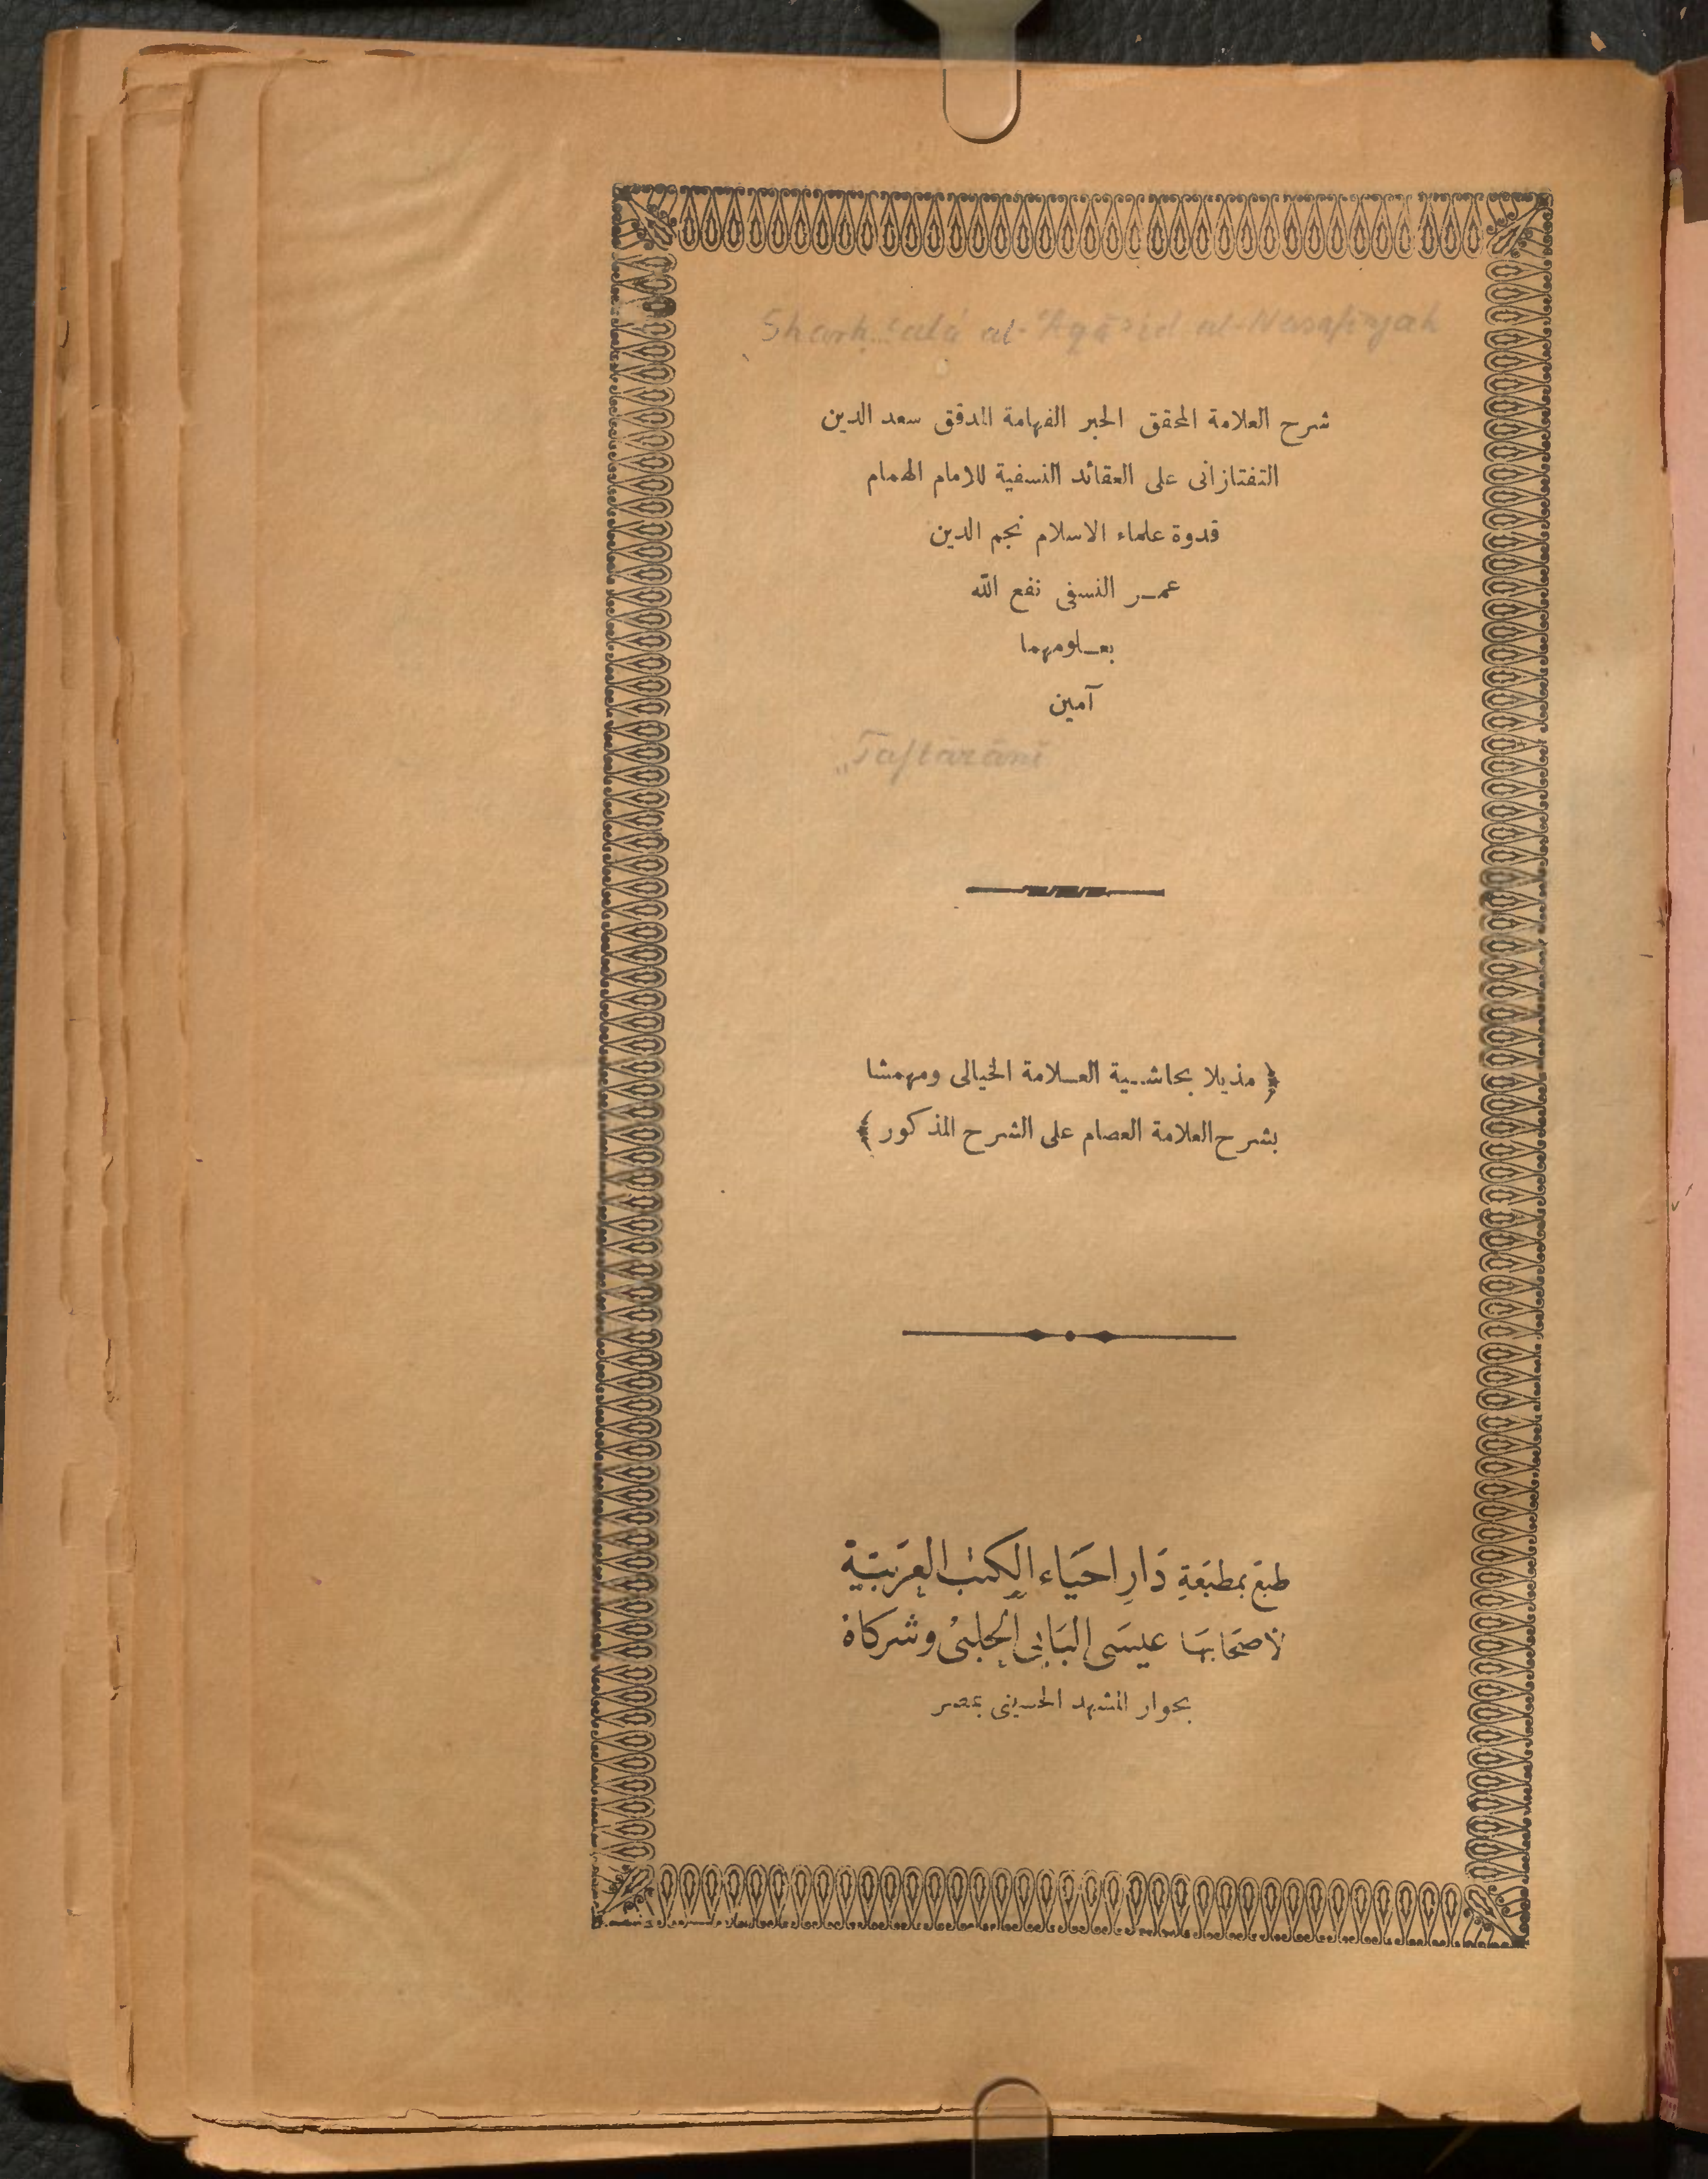 Sharḥ ʻalá al-ʻAqāʼid al-Nasafīyah
شرح العلامة المحقق الحبر الفهامة المدقق سعد الدين
التفتازانى على العقائد النسفية للامام الهمام
قدوة علماء الاسلام نجم الدين
عمـر النسفى نفع الله
بعـلومهما
آمين
Taftāzānī
﴿ مذيلا بحاشـية العـلامة الخيالى ومهمشا
بشرح العلامة العصام على الشرح المذكور ﴾
طبع بمطبَعَةِ دَارِ احيَاء الكتب العَرَبيَّة
لأصحَابهَا عيسَى البَابى الحلبىْ وشركاهْ
بجوار المشهد الحسينى بمصر